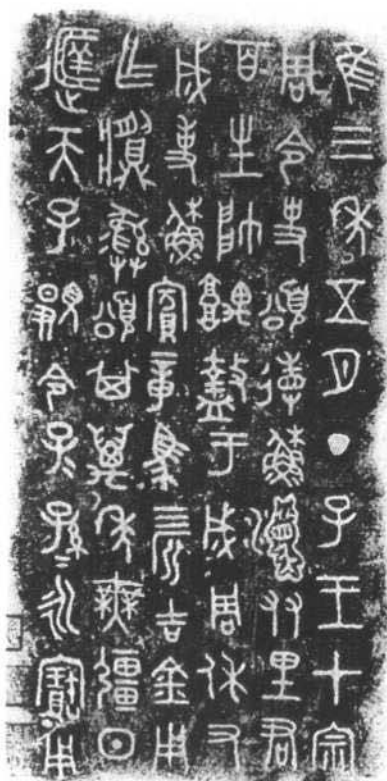 隹三年五月丁子王才宗
周令史頌省蘇友里君
百生帥盩于成周休又
成事蘇賓章馬三匹吉金用
乍彝頌其萬年無疆日
天子令子孫永寶用